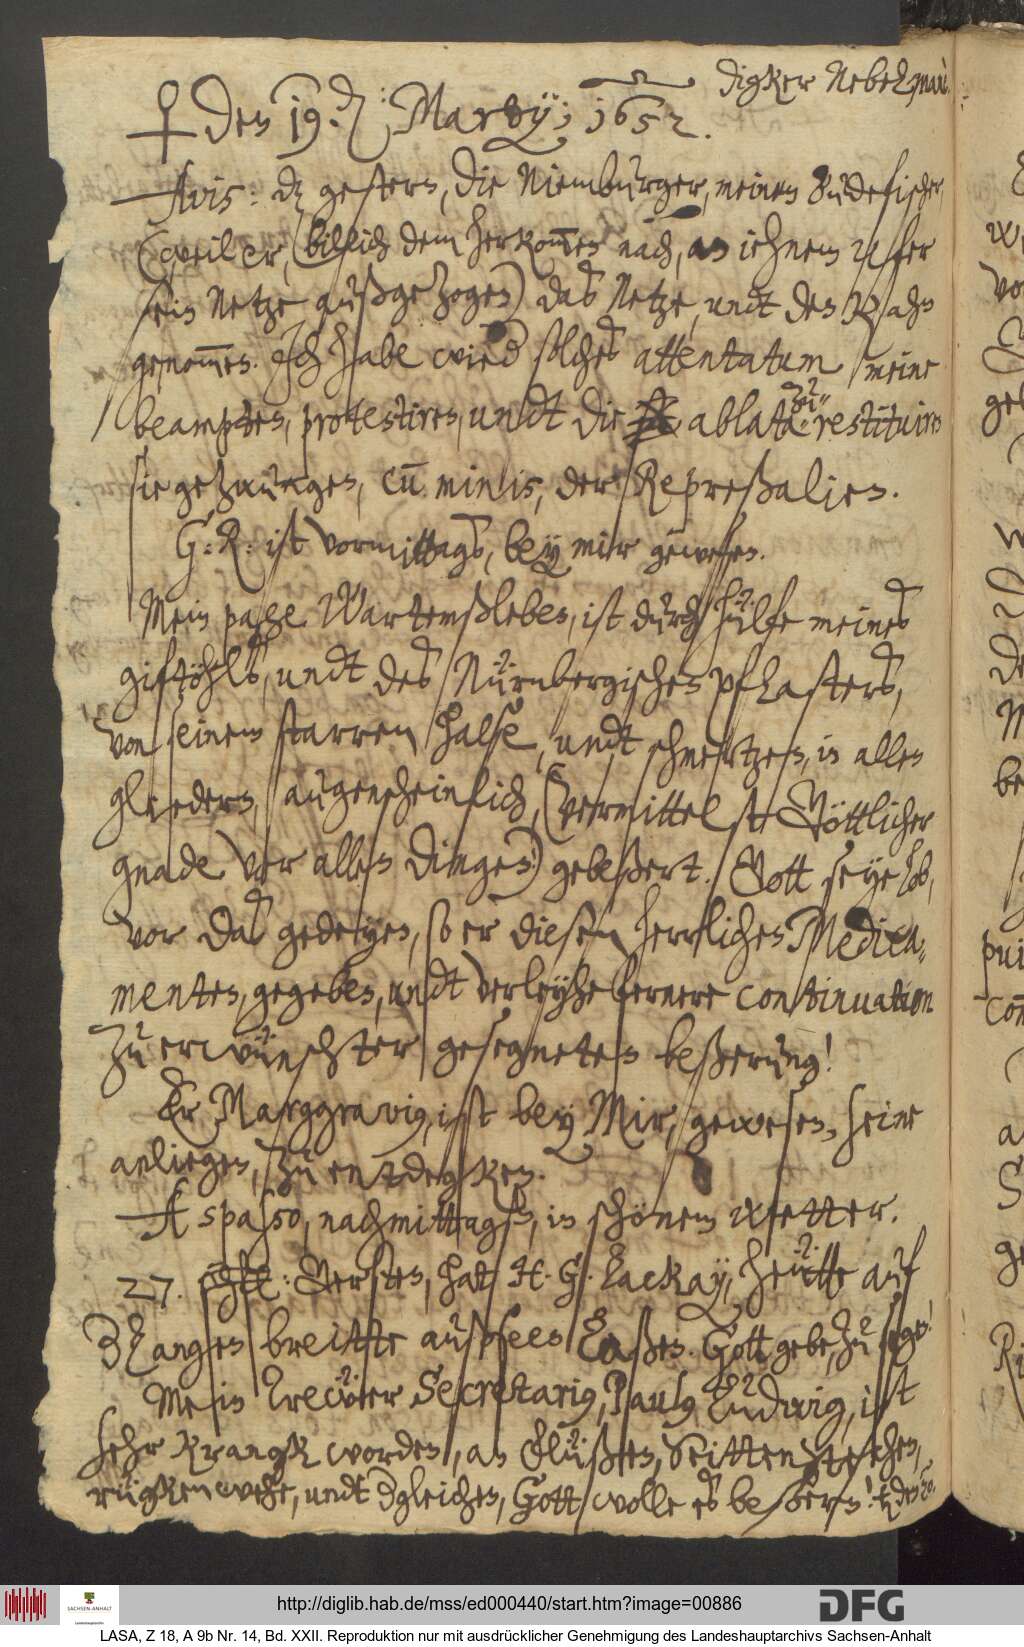 digker Nebel mai
den 19. Martij; 1652.
Avis: dz gestern, die Niemburger, meinen Budefischer,
(weil er, billich dem herkom̄en nach, an iehnem Ufer
sein Netze außgezogen) das Netze, undt den Kahn
genom̄en. Ich habe wied solches attentatum meine
beampten, protestiren, undt die ablata zu restituiren
sie gezwungen, cū minis, der Repreßalien.
G: R: ist vormittags, bey mir gewesen.
Mein page Wartemßleben, ist durch hülfe meines
giftöhls, undt des Nürnbergischen pflasters,
von seinem starren Halse, undt schmertzen, in allen
gliedern, augenscheinlich, (vermittelst Göttlicher
gnade vor allen dingen) gebeßert. Gott seye lob,
vor das gedeyen, so er diesen herrlichen Medica-
menten, gegeben, undt verleyhe fernere continuation
zu erwünschter gesegneten beßerung!
Er Marggravig, ist bey Mir, gewesen, seine
anliegen, zu entdegken.
A spasso, nachmittags, in schönem wetter.
27. schfl: Gersten, hatt H. G. Lackay, heütte auf
3 langen breitte außseen laßen. Gott gebe, zu segen!
Mein trewer Secretarius, Paulus Ludwig, ist
sehr krangk worden, an Flüßen, Seittenstechen,
rügkenwehe, undt dgleichen, Gott wolle es beßern!
pui
http://diglib.hab.de/mss/ed000440/start.htm?image=00886
SACHSEN-ANHALT
Landeshauptarchiv
DFG
LASA, Z 18, A 9b Nr. 14, Bd. XXII. Reproduktion nur mit ausdrücklicher Genehmigung des Landeshauptarchivs Sachsen-Anhalt